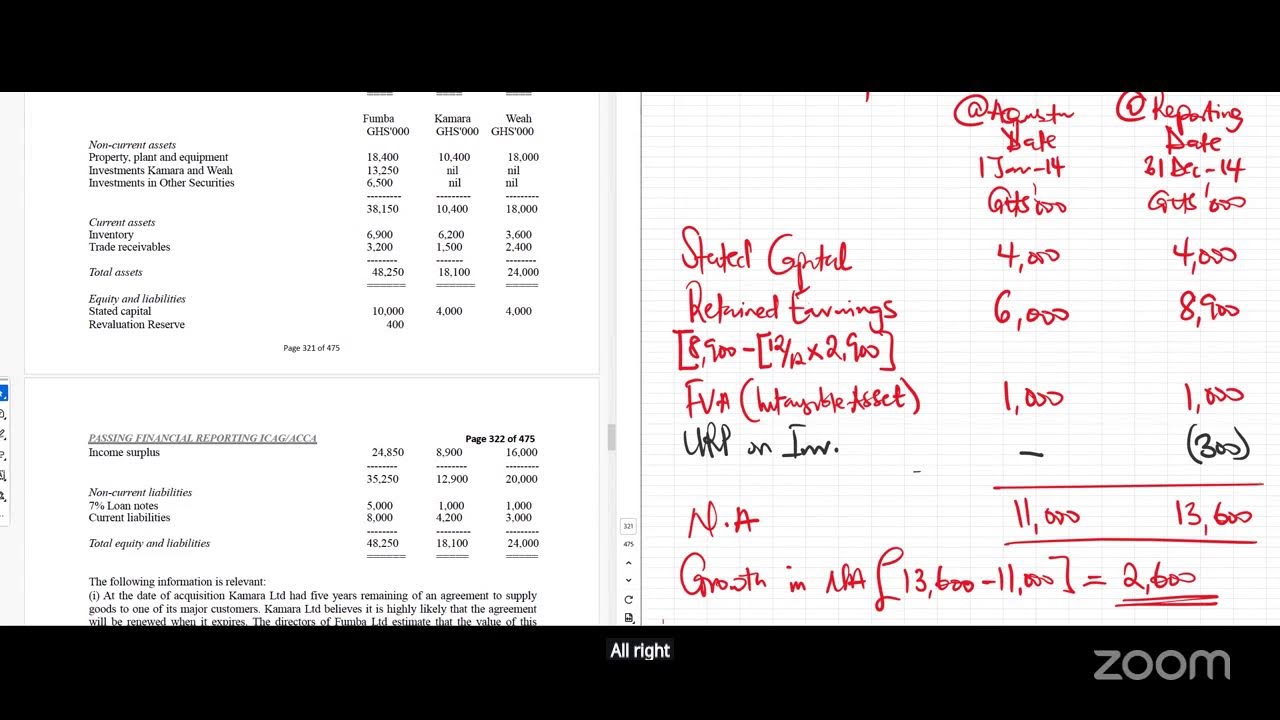 Fumba Kamara Weah
GHS'000 GHS'000 GHS'000
Non-current assets
Property, plant and equipment 18,400 10,400 18,000
Investments Kamara and Weah 13,250 nil nil
Investments in Other Securities 6,500 nil nil
38,150 10,400 18,000
Current assets
Inventory 6,900 6,200 3,600
Trade receivables 3,200 1,500 2,400
Total assets 48,250 18,100 24,000
Equity and liabilities
Stated capital 10,000 4,000 4,000
Revaluation Reserve 400
Page 321 of 475
PASSING FINANCIAL REPORTING ICAG/ACCA Page 322 of 475
Income surplus 24,850 8,900 16,000
35,250 12,900 20,000
Non-current liabilities
7% Loan notes 5,000 1,000 1,000
Current liabilities 8,000 4,200 3,000
Total equity and liabilities 48,250 18,100 24,000
The following information is relevant:
(i) At the date of acquisition Kamara Ltd had five years remaining of an agreement to supply
goods to one of its major customers. Kamara Ltd believes it is highly likely that the agreement
will be renewed when it expires. The directors of Fumba Ltd estimate that the value of this
321
475
@ Reporting
Date Date
1 Jan-14 31 Dec-14
GHS'000 GHS'000
Stated Capital 4,000 4,000
Retained Earnings 6,000 8,900
[8,900-[12/12 x 2,900]
FVA (Intangible Asset) 1,000 1,000
URP on Inv. - (300)
N.A 11,000 13,600
Growth in NA [13,600-11,000] = 2,600
All right
zoom